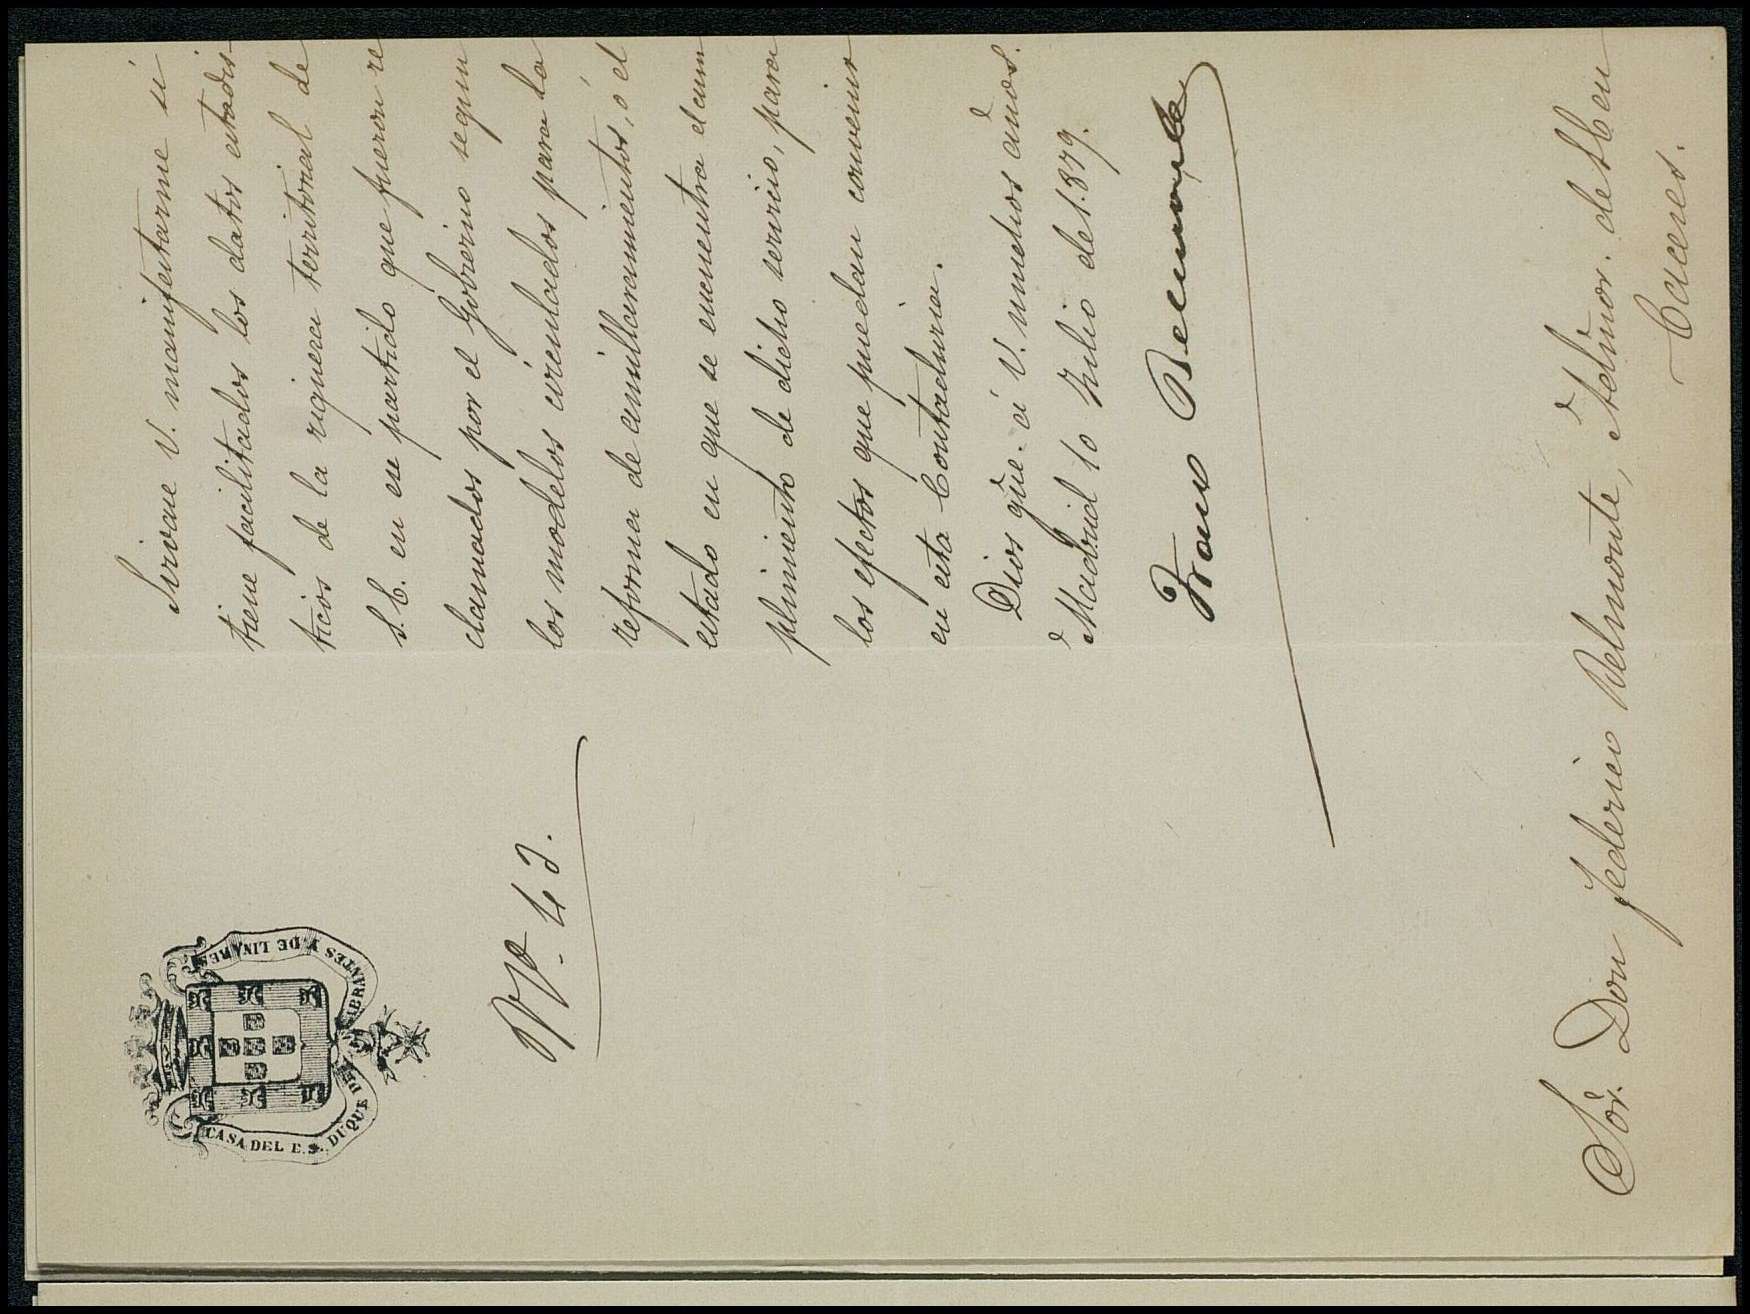 CASA DEL E. S. DUQUE DE ABRANTES Y DE LINARES
Nº 43.
Sirvase V. manifestarme si
tiene facilitados los datos estadis-
ticos de la riqueza territorial de
S.E. en ese partido que fueron re
clamados por el Gobierno segun
los modelos circulados para la
reforma de amillaramientos, ó el
estado en que se encuentra el cum
plimiento de dicho servicio, para
los efectos que puedan convenir
en esta Contaduria.
Dios gũe. á V. muchos años.
Madrid 10 Julio de 1.879.
Franco
Sõr. Don Federico Belmonte, Admor. de S.E. en
Caceres.